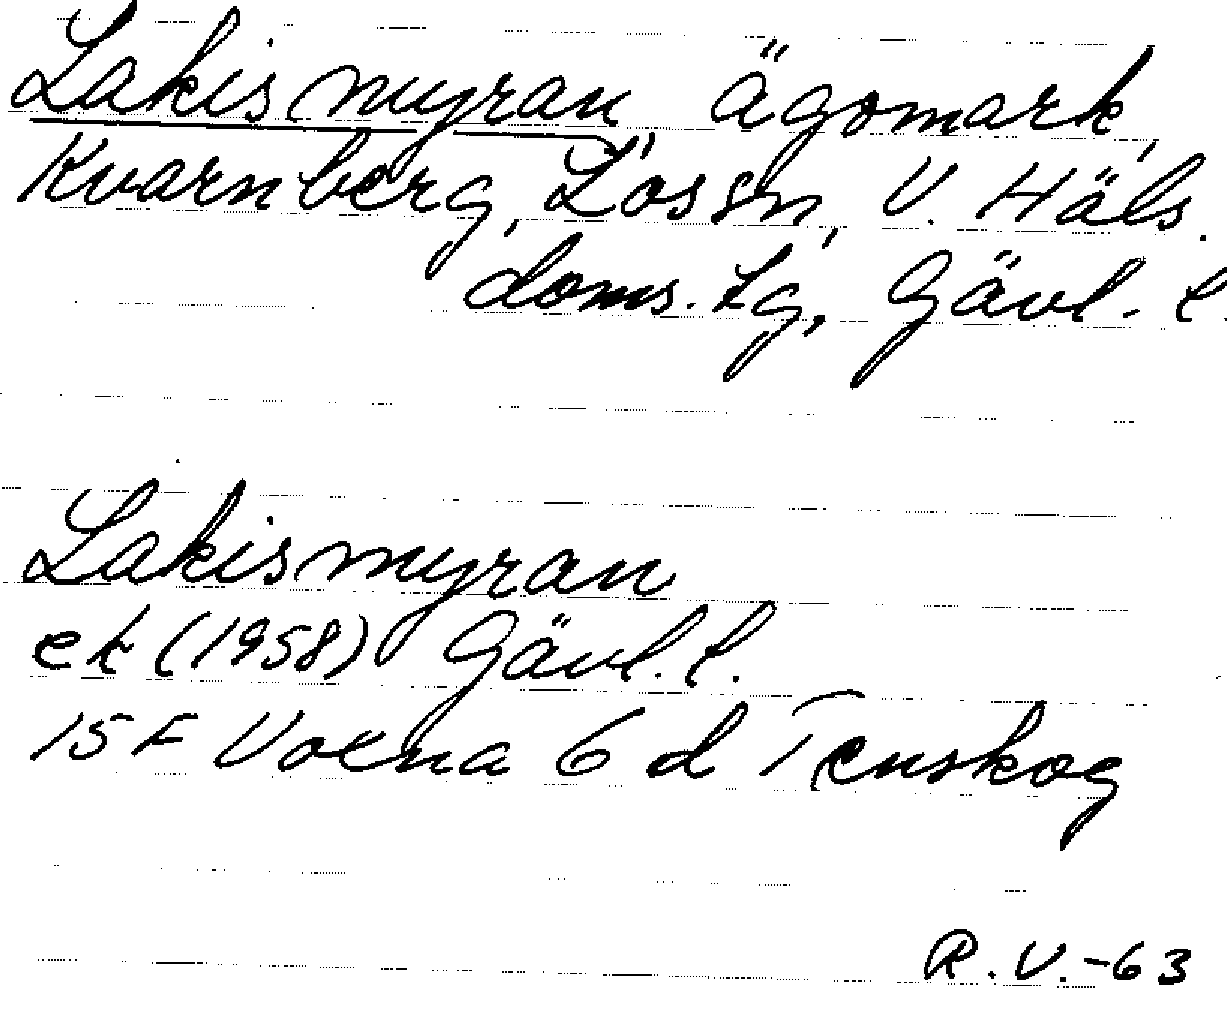 Lakismyran, ägomark,
Kvarnberg, Los sn, V. Häls.
doms. lg, Gävl. l.
Lakismyran
ek (1958) Gävl. l.
15 F Voxna 6 d Tenskog
R. V. -63